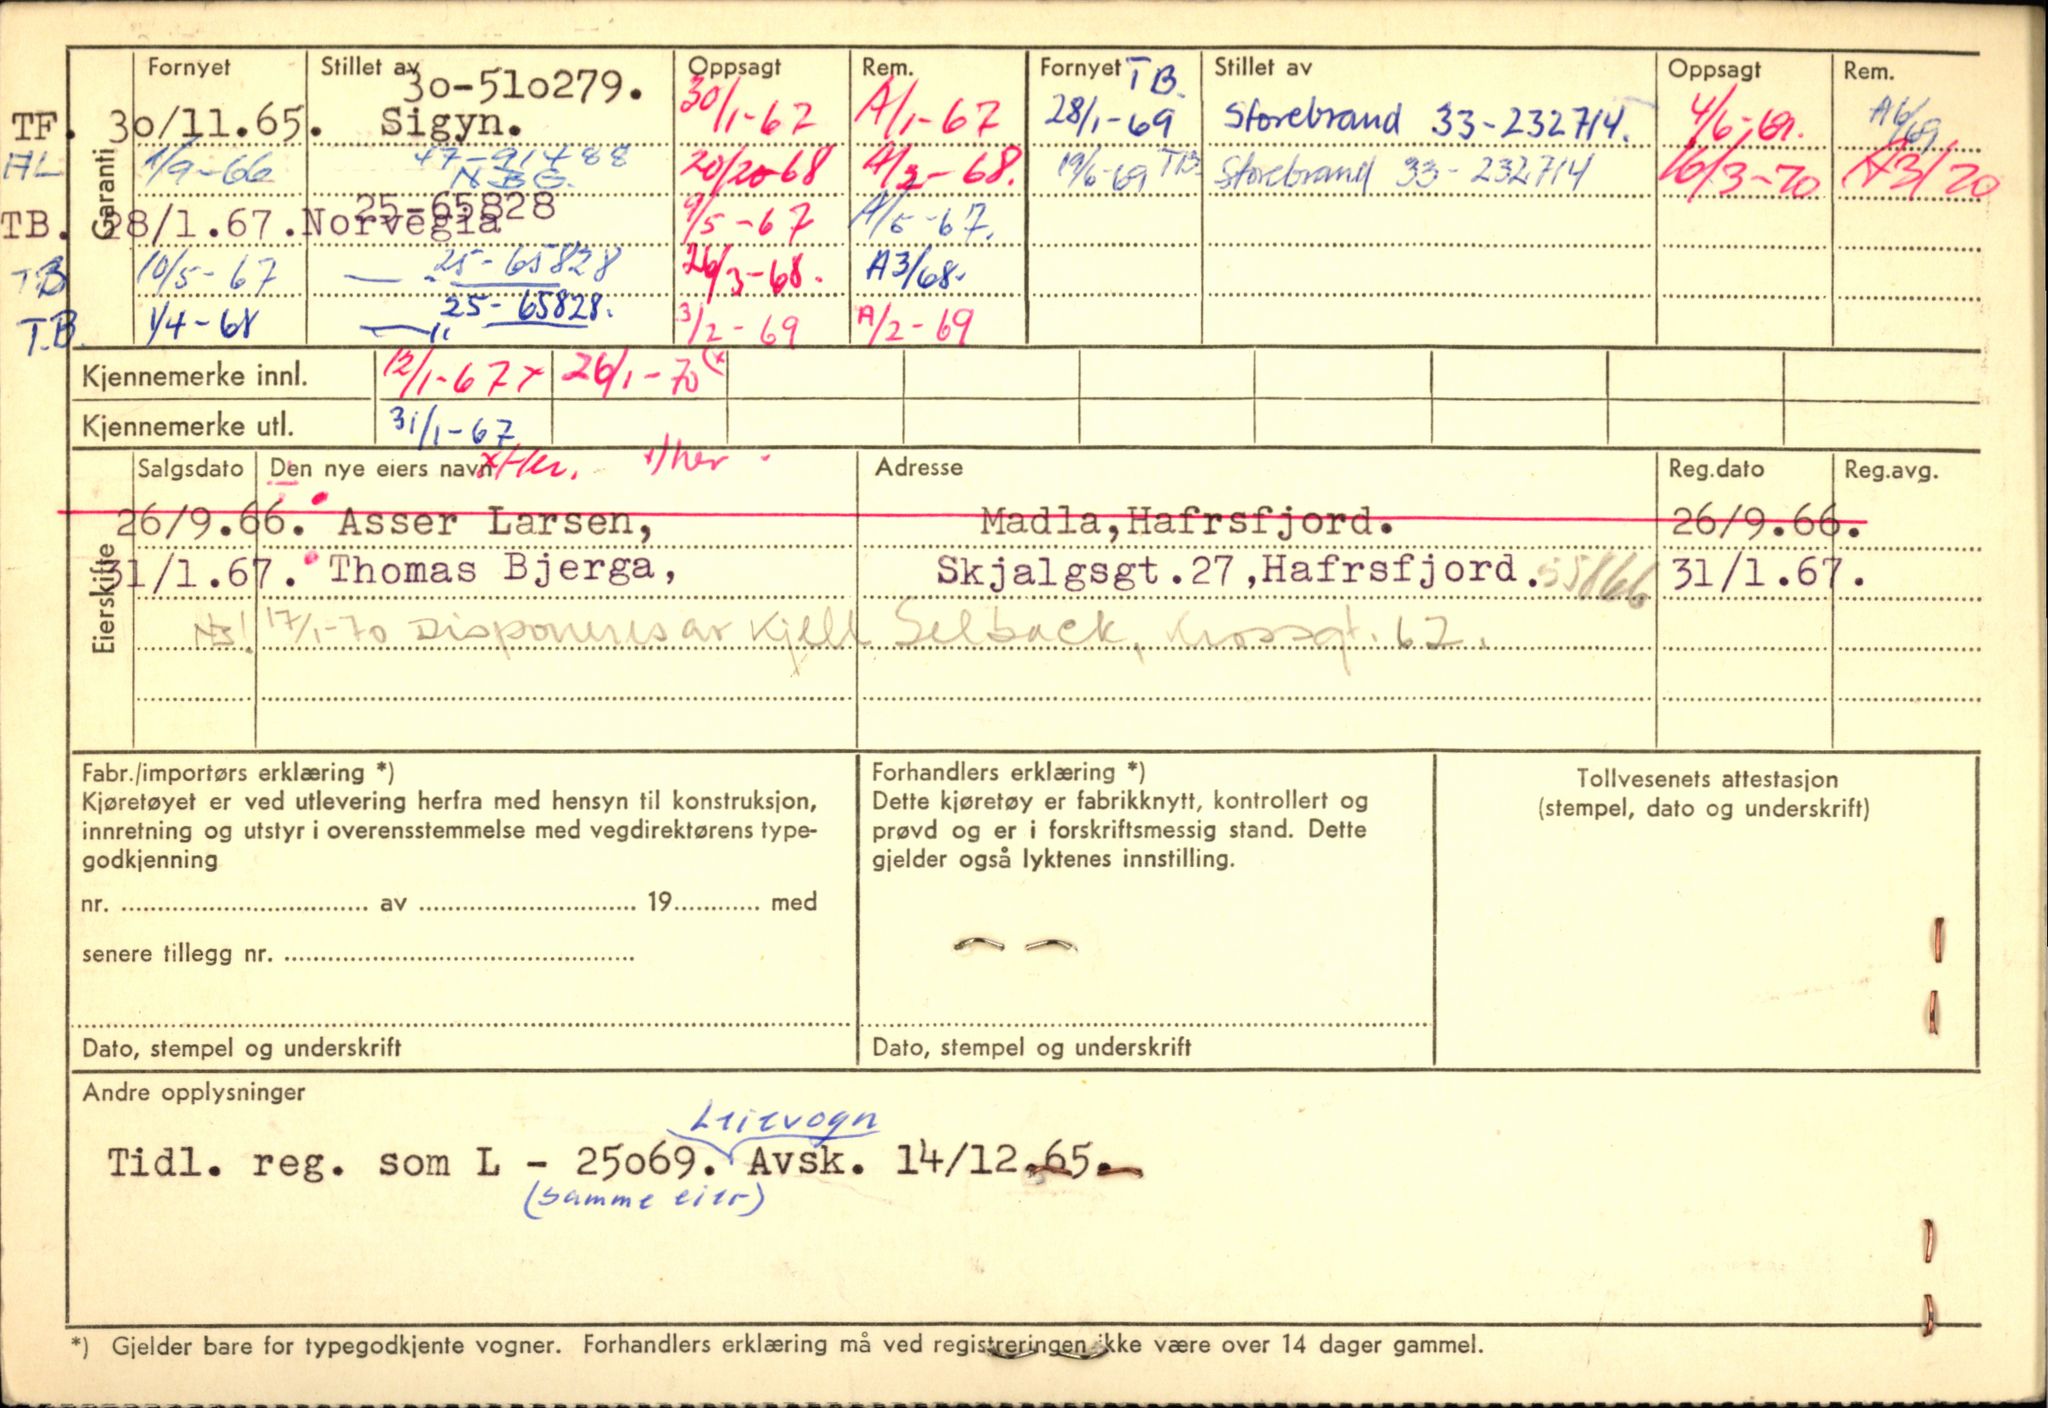 Fornyet Stillet av Oppsagt Rem. Fornyet Stillet av Oppsagt Rem.
30-510279.
TF. 30/11.65. Sigyn. 30/1-67 A/1-67 TB. 28/1-69 Storebrand 33-232714. 4/6-69. A6/69
AL 1/9-66 NBG. A/3-68. 19/6-69 TB. Storebrand 33-232714 16/3-70 A3/70
25-65828
TB. 28/1.67. Norvegia 9/5-67 A/5-67.
TB 10/5-67 25-65828 26/3-68. A3/68.
T.B. 1/4-68 —"— 25-65828. 3/2-69 A/2-69
Garanti
Kjennemerke innl. 12/1-67 x 26/1-70 (x
Kjennemerke utl. 31/1-67
Salgsdato Den nye eiers navn xHer. Adresse Reg.dato Reg.avg.
26/9.66. Asser Larsen, Madla, Hafrsfjord. 26/9.66.
31/1.67. Thomas Bjerga, Skjalgsgt.27, Hafrsfjord. 31/1.67.
Ns! 17/1-70 Disponeres av Kjell Selback, Krossgt. 62.
Eierskifte
Fabr./importørs erklæring *)
Kjøretøyet er ved utlevering herfra med hensyn til konstruksjon,
innretning og utstyr i overensstemmelse med vegdirektørens type-
godkjenning
nr. av 19 med
senere tillegg nr.
Dato, stempel og underskrift
Forhandlers erklæring *)
Dette kjøretøy er fabrikknytt, kontrollert og
prøvd og er i forskriftsmessig stand. Dette
gjelder også lyktenes innstilling.
Dato, stempel og underskrift
Tollvesenets attestasjon
(stempel, dato og underskrift)
Andre opplysninger
Leievogn
Tidl. reg. som L - 25069. Avsk. 14/12.65.
(samme eier)
*) Gjelder bare for typegodkjente vogner. Forhandlers erklæring må ved registreringen ikke være over 14 dager gammel.